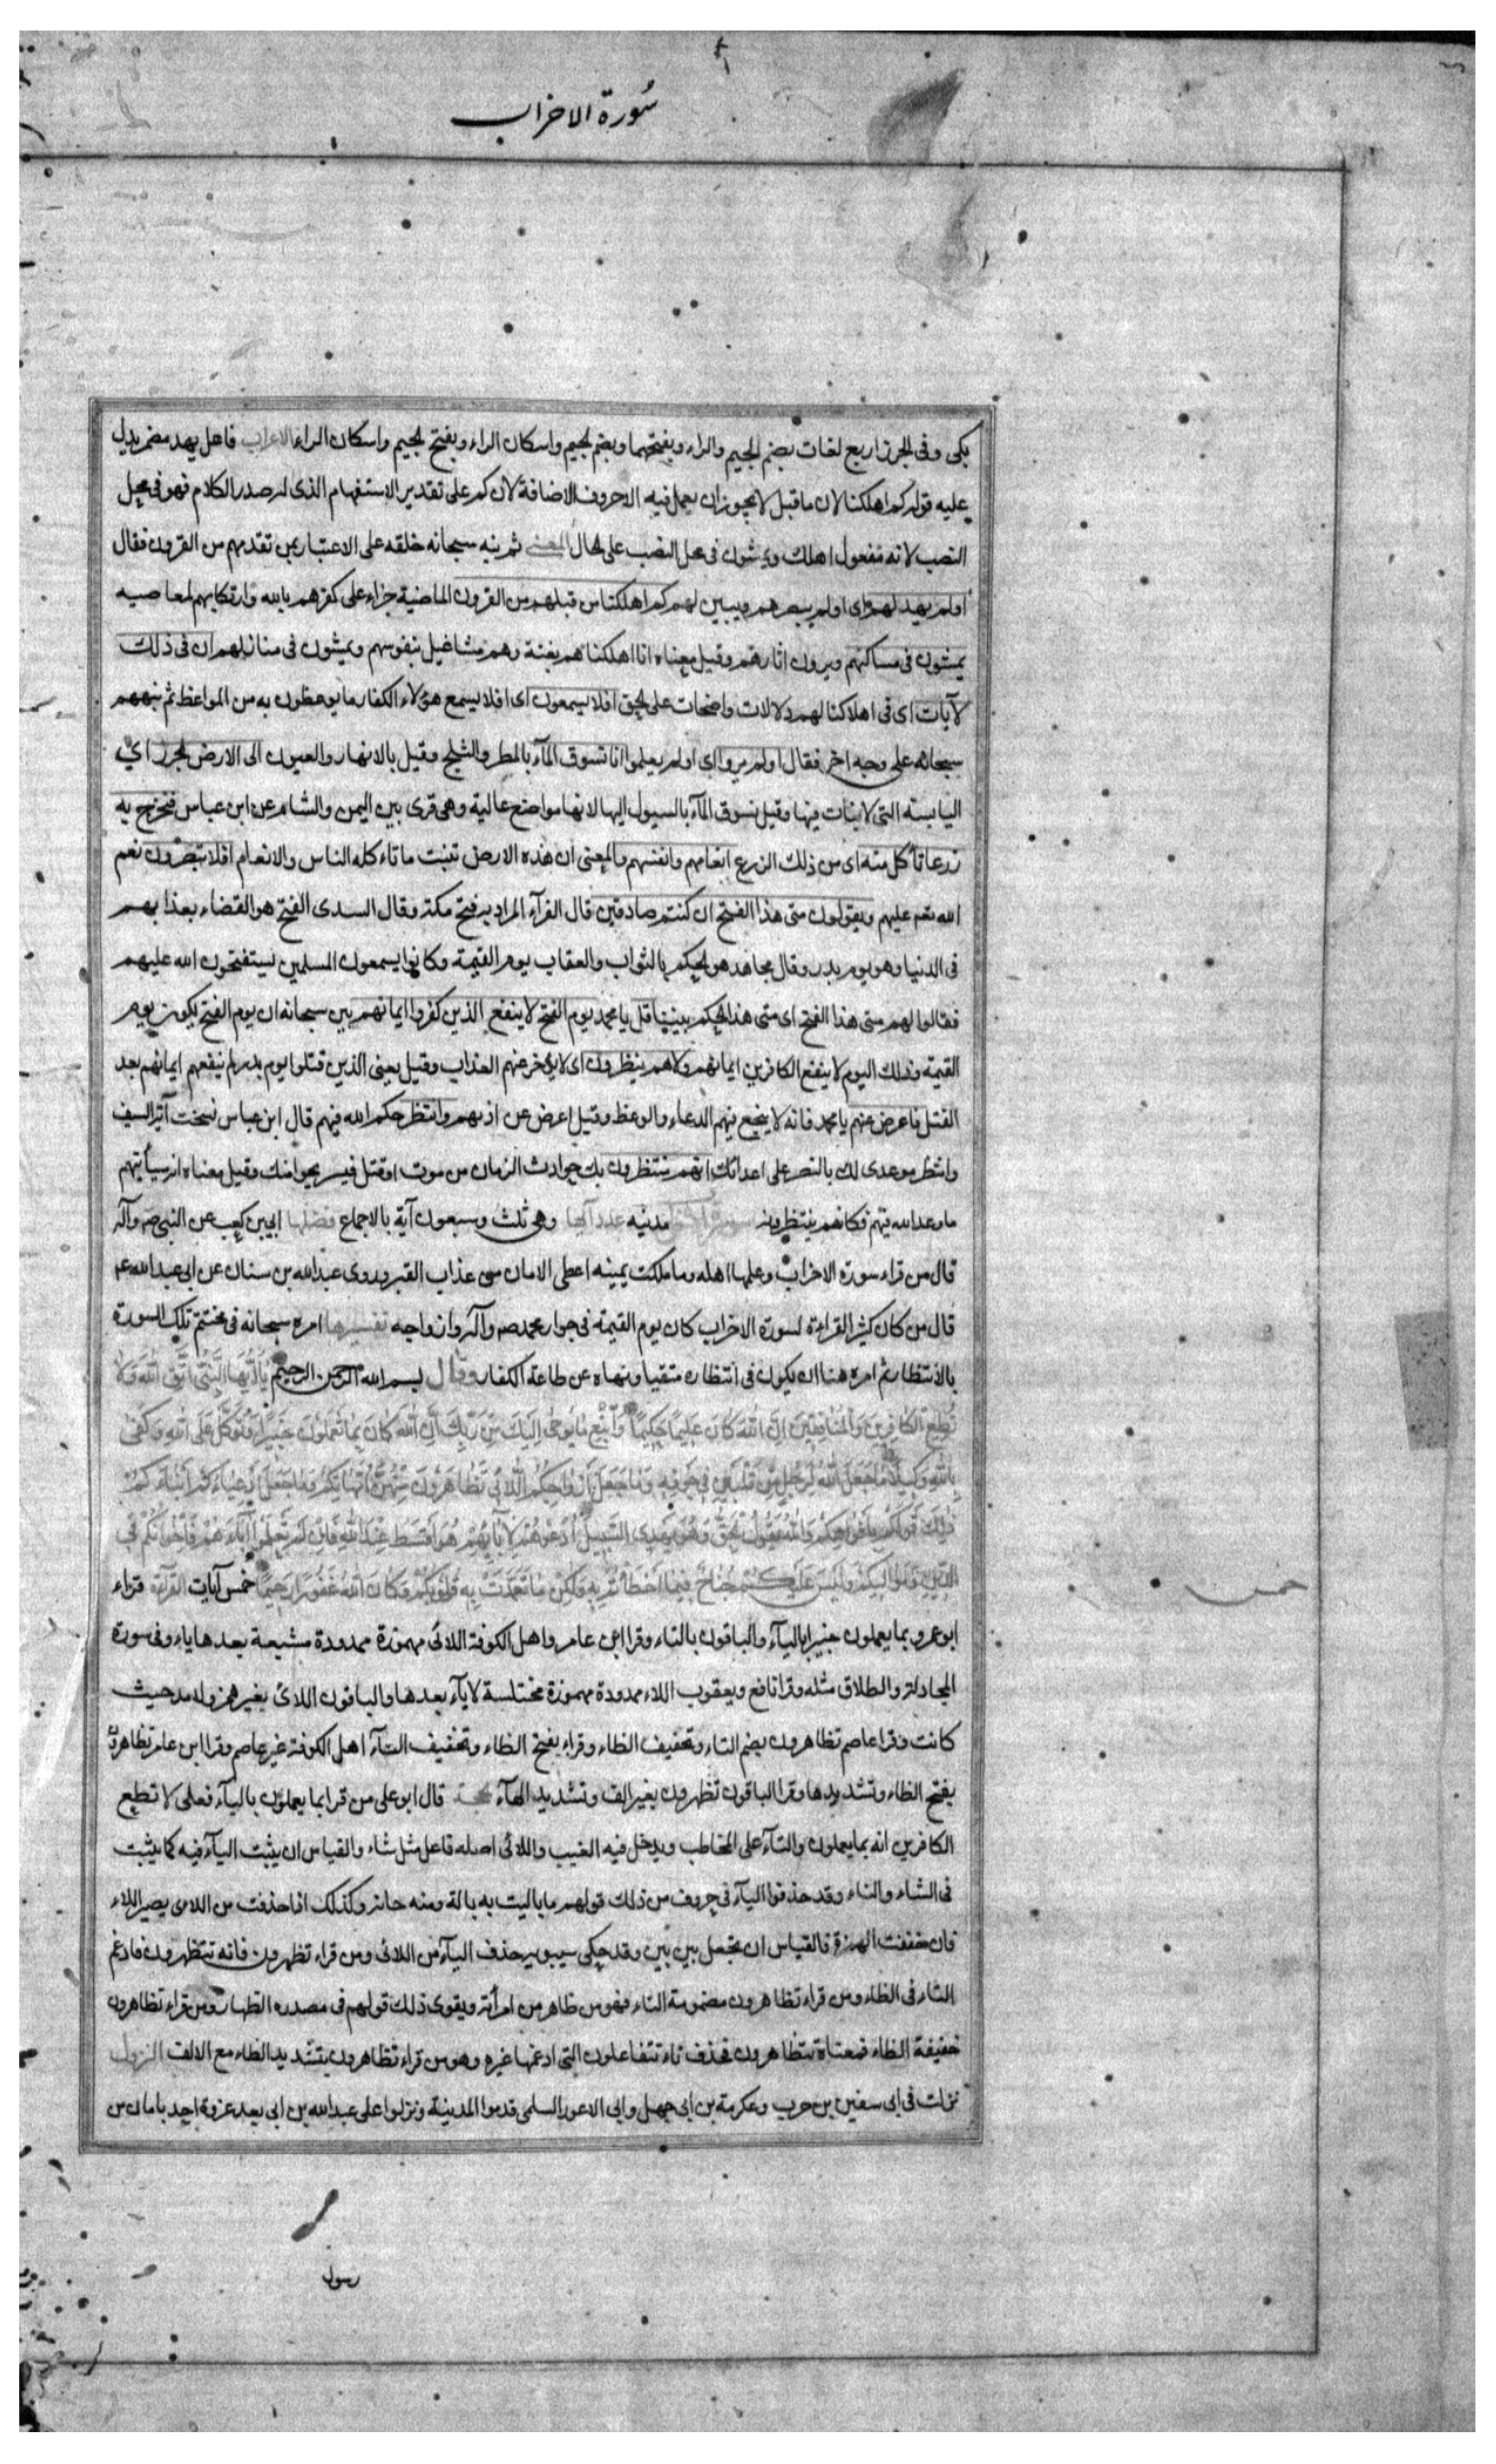 سورة الاحزاب
يكى وفى الجرز اربع لغات بضم الجيم والراء وبفتحهما وبضم الجيم واسكان الراء وبفتح الجيم واسكان الراء الاعراب فاعل يهد مضمر يدل
عليه قوله كم اهلكنا لان ما قبل لا يجوز ان يعمل فيه الا حروف الاضافة لان كم على تقدير الاستفهام الذى له صدر الكلام فهو فى محل
النصب لانه مفعول اهلك ويمشون فى محل النصب على الحال المعنى ثم نبه سبحانه خلقه على الاعتبار بمن تقدمهم من القرون فقال
اولم يهد لهم اى اولم يبصرهم ويبين لهم كم اهلكنا من قبلهم من القرون الماضية جزاء على كفرهم بالله وارتكابهم لمعاصيه
يمشون فى مساكنهم ويرون اثارهم وقيل معناه انا اهلكناهم بغتة وهم مشاغيل بنفوسهم ويمشون فى منازلهم ان فى ذلك
لآيات اى فى اهلاكنا لهم دلالات واضحات على الحق افلا يسمعون اى افلا يسمع هؤلاء الكفار ما يوعظون به من المواعظ ثم نبههم
سبحانه على وجه اخر فقال اولم يروا اى اولم يعلموا انا نسوق المآء بالمطر والثلج وقيل بالانهار والعيون الى الارض الجرز اي
اليابسة التى لا نبات فيها وقيل نسوق المآء بالسيول اليها لانها مواضع عالية وهى قرى بين اليمن والشام عن ابن عباس فنخرج به
زرعا تأكل منه اى من ذلك الزرع انعامهم وانفسهم والمعنى ان هذه الارض تنبت ما تاءكله الناس والانعام افلا يبصرون نعم
الله نعم عليهم ويقولون متى هذا الفتح ان كنتم صادقين قال الفرآء المراد به فتح مكة وقال السدى الفتح هو القضاء بعذابهم
فى الدنيا وهو يوم بدر وقال مجاهد هو الحكم بالثواب والعقاب يوم القيمة وكانوا يسمعون المسلمين يستفتحون الله عليهم
فقالوا لهم متى هذا الفتح اى متى هذا الحكم بيننا قل يا محمد يوم الفتح لا ينفع الذين كفروا ايمانهم بين سبحانه ان يوم الفتح يكون يوم
القيمة وذلك اليوم لا ينفع الكافرين ايمانهم ولا هم ينظرون اى لا يؤخر عنهم العذاب وقيل يعنى الذين قتلوا يوم بدر لم ينفعهم ايمانهم بعد
القتل فاعرض عنهم يا محمد فانه لا ينجع فيهم الدعاء والوعظ وقيل اعرض عن اذاهم وانتظر حكم الله فيهم قال ابن عباس نسخت آية السيف
وانتظر موعدى لك بالنصر على اعدائك انهم منتظرون بك حوادث الزمان من موت او قتل فيستريحوا منك وقيل معناه انه سيأتيهم
ما وعد الله فيهم فكانهم ينتظرونه سورة الاحزاب مدنيه عدد آيها وهى ثلث وسبعون آية بالاجماع فضلها ابى بن كعب عن النبى ص وآله
قال من قراء سورة الاحزاب وعلمها اهله وما ملكت يمينه اعطى الامان من عذاب القبر وروى عبد الله بن سنان عن ابى عبد الله ع
قال من كان كثير القراءة لسورة الاحزاب كان يوم القيمة فى جوار محمد ص وآله وازواجه تفسيرها امره سبحانه فى مختتم تلك السورة
بالانتظار ثم امره هنا ان يكون فى انتظاره متقيا ونهاه عن طاعة الكفار وقال بسم الله الرحمن الرحيم يَا أَيُّهَا النَّبِيُّ اتَّقِ اللَّهَ وَلَا
تُطِعِ الْكَافِرِينَ وَالْمُنَافِقِينَ إِنَّ اللَّهَ كَانَ عَلِيمًا حَكِيمًا وَاتَّبِعْ مَا يُوحَى إِلَيْكَ مِنْ رَبِّكَ إِنَّ اللَّهَ كَانَ بِمَا تَعْمَلُونَ خَبِيرًا وَتَوَكَّلْ عَلَى اللَّهِ وَكَفَى
بِاللَّهِ وَكِيلًا مَا جَعَلَ اللَّهُ لِرَجُلٍ مِنْ قَلْبَيْنِ فِي جَوْفِهِ وَمَا جَعَلَ أَزْوَاجَكُمُ اللَّائِي تُظَاهِرُونَ مِنْهُنَّ أُمَّهَاتِكُمْ وَمَا جَعَلَ أَدْعِيَاءَكُمْ أَبْنَاءَكُمْ
ذَلِكُمْ قَوْلُكُمْ بِأَفْوَاهِكُمْ وَاللَّهُ يَقُولُ الْحَقَّ وَهُوَ يَهْدِي السَّبِيلَ ادْعُوهُمْ لِآبَائِهِمْ هُوَ أَقْسَطُ عِنْدَ اللَّهِ فَإِنْ لَمْ تَعْلَمُوا آبَاءَهُمْ فَإِخْوَانُكُمْ فِي
الدِّينِ وَمَوَالِيكُمْ وَلَيْسَ عَلَيْكُمْ جُنَاحٌ فِيمَا أَخْطَأْتُمْ بِهِ وَلَكِنْ مَا تَعَمَّدَتْ بِهِ قُلُوبُكُمْ وَكَانَ اللَّهُ غَفُورًا رَحِيمًا خمس آيات القرآءة قراء
ابو عمرو بما يعملون خبيرا باليآء والباقون بالتاء وقرا ابن عامر واهل الكوفة اللائى مهموزة ممدودة مشبعة بعدها ياء وفى سورة
المجادلة والطلاق مثله وقرا نافع ويعقوب اللاء ممدودة مهموزة مختلسة لا يآء بعدها والباقون اللائ بغير همز ولا مد حيث
كانت وقرا عاصم تظاهرون بضم التاء وتخفيف الظاء وقراء بفتح الظاء وتخفيف التآء اهل الكوفة غير عاصم وقرا ابن عامر تظاهرون
بفتح الظاء وتشديدها وقرا الباقون تظهرون بغير الف وتشديد الهآء الحجة قال ابو على من قرا بما يعملون باليآء فعلى لا تطع
الكافرين انه بما يعملون والتآء على المخاطب ويدخل فيه الغيب واللائى اصله فاعل مثل شاء والقياس ان يثبت اليآء فيه كما يثبت
فى الشاء والناء وقد حذفوا اليآء فى حروف من ذلك قولهم ما باليت به بالة ومنه حانة وكذلك اذا حذفت من اللاى يصير اللاء
فان خففت الهمزة فالقياس ان تجعل بين بين وقد حكى سيبويه حذف اليآء من اللائى ومن قراء تظهرون فانه تتظهرون فادغم
التاء فى الظاء ومن قراء تظاهرون مضمومة التاء فهو من ظاهر من امرأته ويقوى ذلك قولهم فى مصدره الظهار ومن قراء تظاهرون
خفيفة الظاء فمعناه تتظاهرون فحذف تاء تتفاعلون التى ادغمها غيره وهو من قراء تظاهرون بتشديد الظاء مع الالف النزول
نزلت فى ابى سفين بن حرب وعكرمة بن ابى جهل وابى الاعور السلمى قدموا المدينة ونزلوا على عبد الله بن ابى بعد غزوة احد بامان من
خمس
رسول